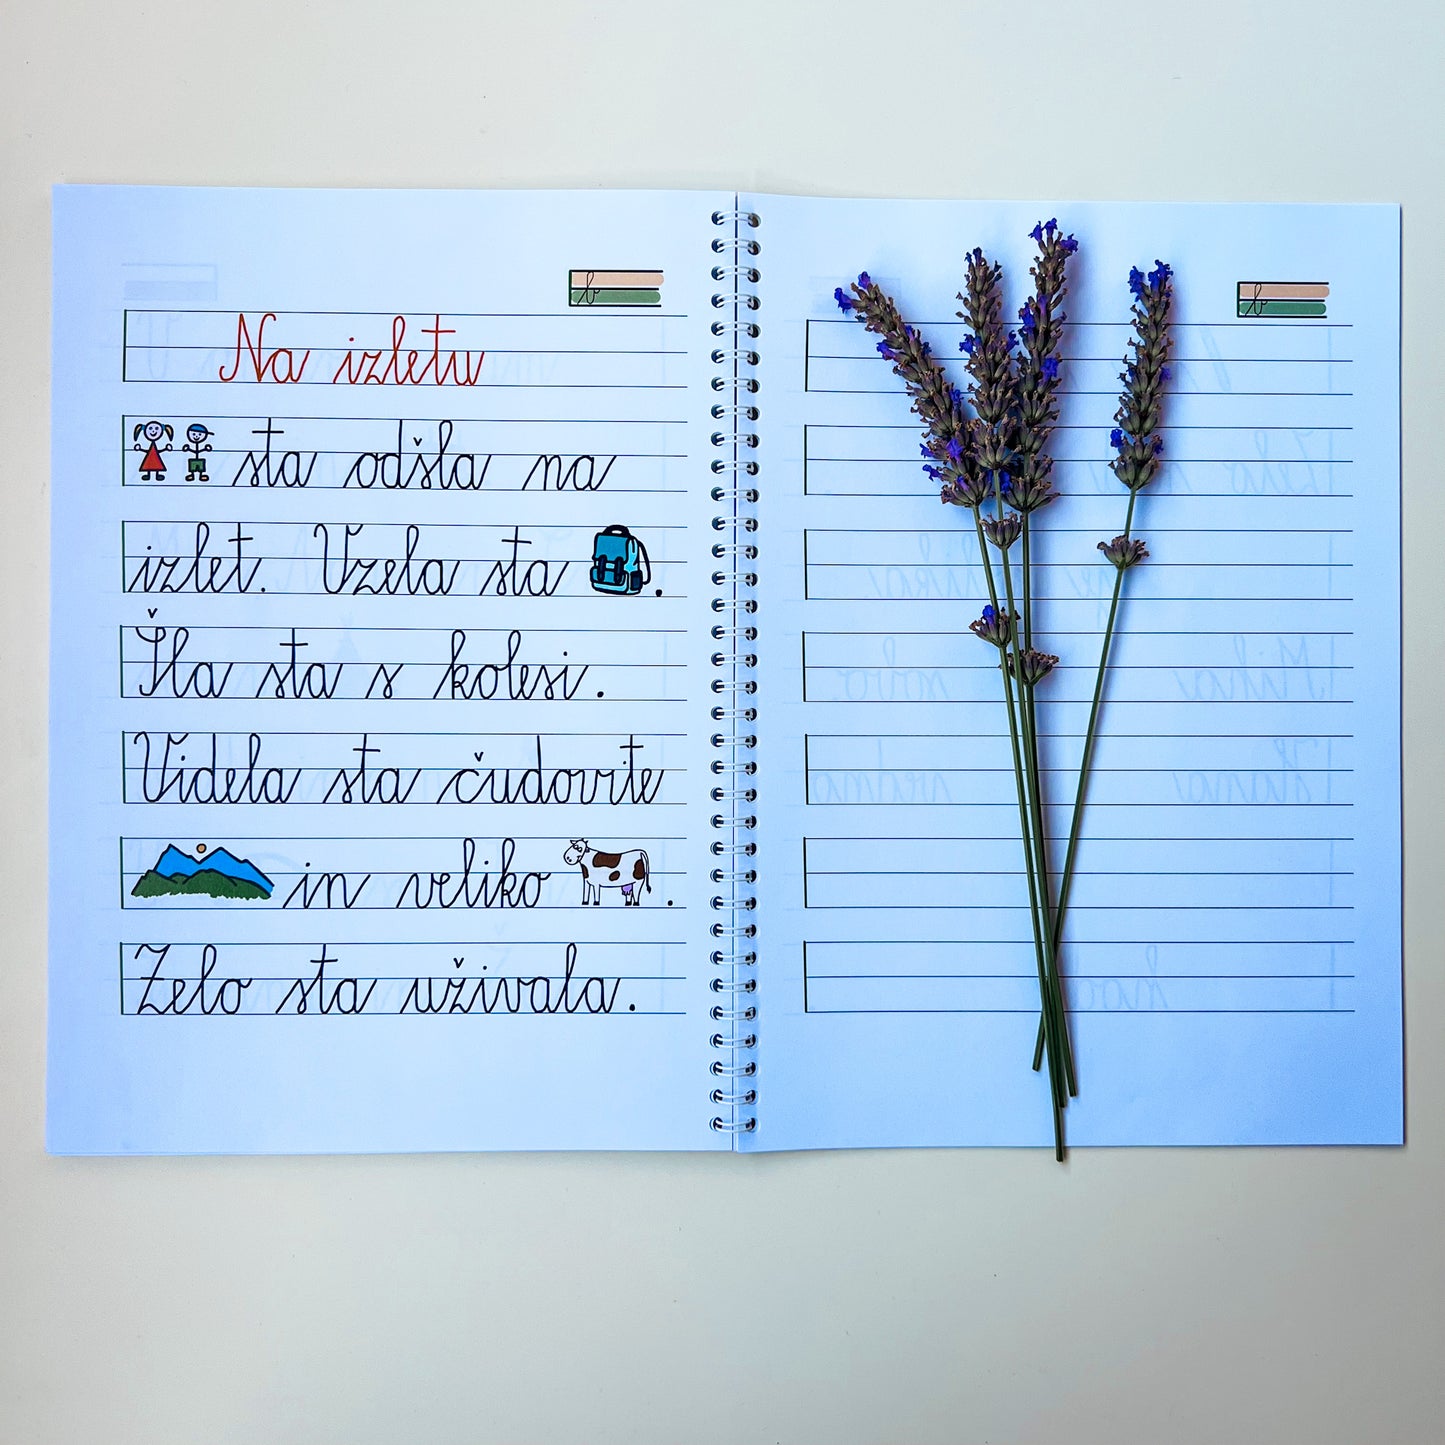 b
Na izletu
sta odšla na
izlet. Vzela sta .
Šla sta s kolesi.
Videla sta čudovite
in veliko .
Zelo sta uživala.
b